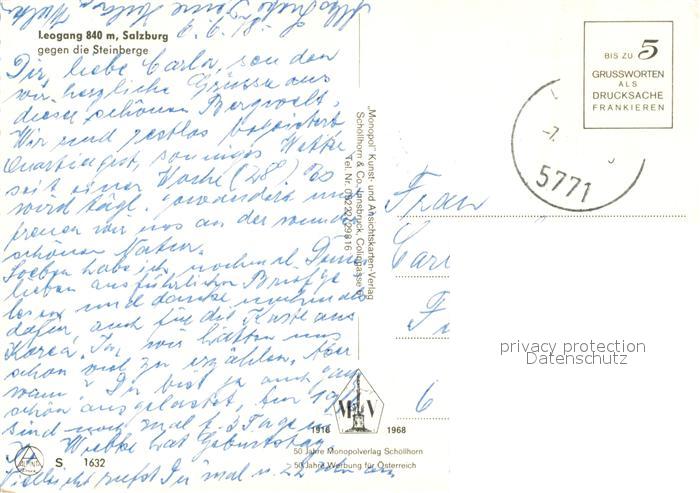 Leogang 840 m, Salzburg
gegen die Steinberge
Dir, liebe Carla, senden
wir herzliche Grüsse aus
dieser schönen Bergwelt.
Wir sind restlos begeistert
Quartier gut, sonniges Wetter
seit einer Woche (28°). Es
wird tägl. gewandert und
freuen wir uns an der wunder
schönen Natur.
Soeben habe ich nochmal Deinen
lieben ausführlichen Brief ge
lesen und danke nochmals
dafür, auch für die Karte aus
Korea. Ja, wir hätten uns
schon viel zu erzählen. Aber
wann? Du bist ja auch ganz
schön ausgelastet,
sind nochmal 2-3 Tage
hat Geburtstag.
Vielleicht rufst Du mal
BIS ZU 5
GRUSSWORTEN
ALS
DRUCKSACHE
FRANKIEREN
5771
„Monopol" Kunst- und Ansichtskarten-Verlag
Schöllhorn & Co. Innsbruck, Colingasse
Tel. Nr. 05222/29816
Frau
Carl
6
privacy protection
Datenschutz
1918 1968
50 Jahre Monopolverlag Schöllhorn
50 Jahre Werbung für Österreich
ALPINA
S 1632